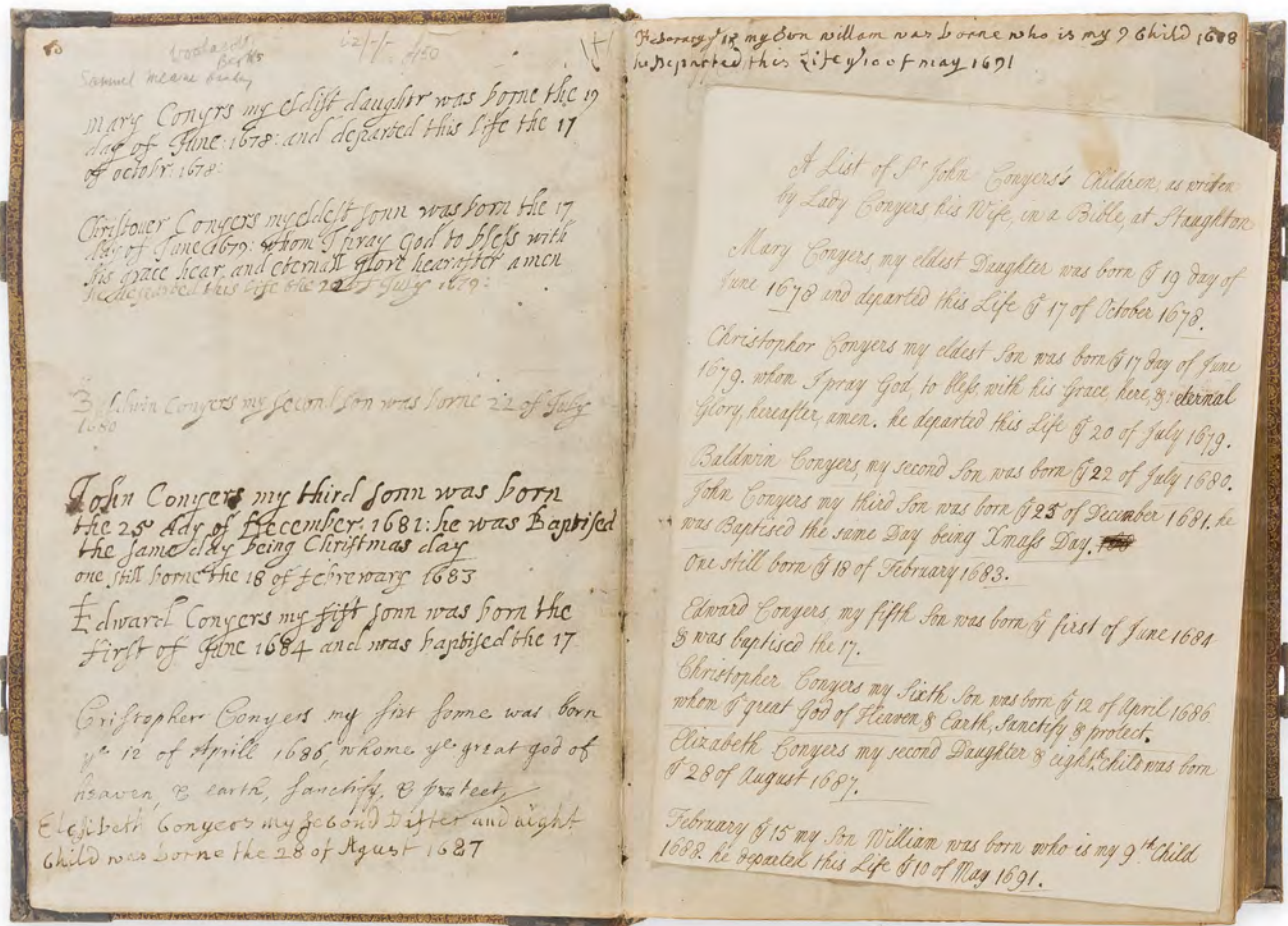 Woolands
Berks
Samuel Mearne
12/-/-
£50
mary Conyrs my eldist daughter was borne the 19
day of June: 1678: and departed this life the 17
of octobr: 1678:
Christover Conyers my eldest sonn was born the 17
day of June 1679: whom I pray god to bless with
his grace hear, and eternall glore hearafter amen
he departed this life the 20 of July 1679:
Baldwin Conyers my second son was borne 22 of July
1680
John Conyers my third sonn was born
the 25 day of December: 1681: he was Baptised
the same day being Christmas day
one still borne the 18 of febrewary 1683
Edward Conyers my fift sonn was born the
first of June 1684 and was baptised the 17
Cristopher Conyers my sixt sonne was born
ye 12 of Aprill 1686, whome ye great god of
heaven, & earth, sanctify, & protect
Elesibeth Conyers my second Dafter and aight
Child was borne the 28 of Agust 1687
my Son willam was borne who is my 9 Child 1688
he Departed this Life ye 10 of may 1691
A List of Sr John Conyers's Children, as writen
by Lady Conyers his Wife, in a Bible, at Staughton
Mary Conyers, my eldest Daughter was born ye 19 day of
June 1678 and departed this Life ye 17 of October 1678.
Christopher Conyers my eldest Son was born ye 17 day of June
1679. whom I pray God, to bless, with his Grace, here, & eternal
Glory, hereafter, amen. he departed this Life ye 20 of July 1679.
Baldwin Conyers, my second Son was born ye 22 of July 1680.
John Conyers my third Son was born ye 25 of December 1681. he
was Baptised the same Day being Xmass Day.
One still born ye 18 of February 1683.
Edward Conyers, my fifth Son was born ye first of June 1684
& was baptised the 17.
Christopher Conyers my Sixth Son was born ye 12 of April 1686
whom ye great God of Heaven & Earth, Sanctify & protect.
Elizabeth Conyers my second Daughter & eighth Child was born
ye 28 of August 1687.
February ye 15 my Son William was born who is my 9th Child
1688. he departed this Life ye 10 of May 1691.